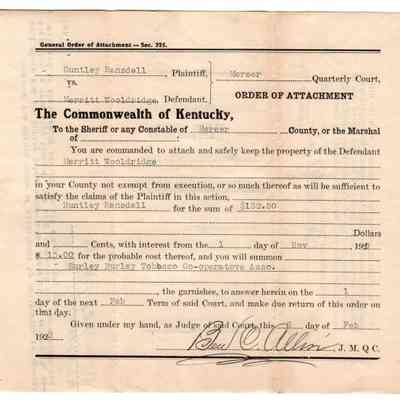 General Order of Attachment — Sec. 225.
Huntley Ransdell, Plaintiff,
vs.
Merritt Wooldridge, Defendant.
Mercer Quarterly Court,
ORDER OF ATTACHMENT
The Commonwealth of Kentucky,
To the Sheriff or any Constable of Mercer County, or the Marshal
of :
You are commanded to attach and safely keep the property of the Defendant
Merritt Wooldridge
in your County not exempt from execution, or so much thereof as will be sufficient to
satisfy the claims of the Plaintiff in this action,
Huntley Ransdell for the sum of $132.50
Dollars
and Cents, with interest from the 1 day of Nov, 192
$ 15.00 for the probable cost thereof, and you will summon
Burley Tobacco Co-operatove Asso.
, the garnishee, to answer herein on the 1
day of the next Feb Term of said Court, and make due return of this order on
that day.
Given under my hand, as Judge of said Court, this day of Feb
192
Ben C. Allin J. M. Q C.